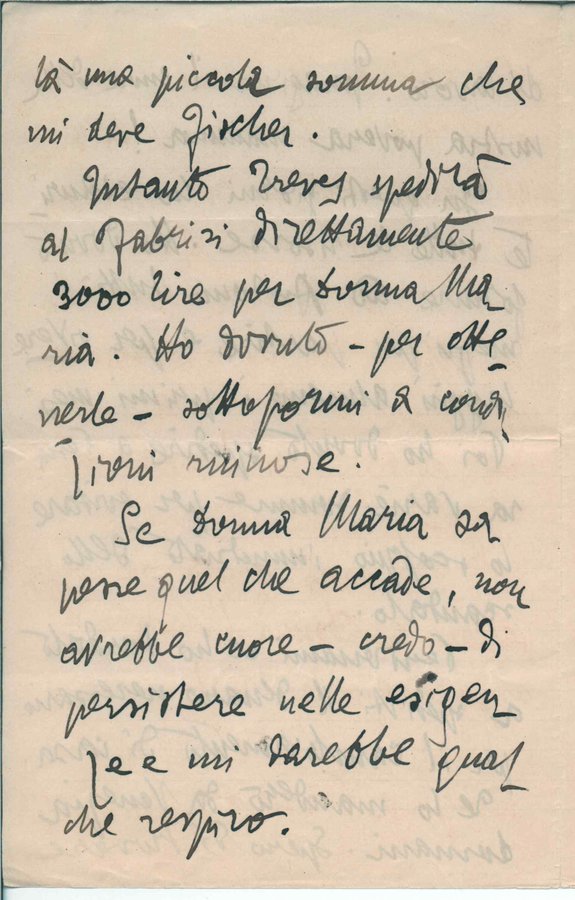 là una piccola somma che
mi deve Fischer.
Intanto Treves spedirà
al Fabrizi direttamente
3000 lire per Donna Ma
ria. Ho dovuto – per otte
nerle – sottopormi a condi
zioni ruinose.
Se Donna Maria sa
pesse quel che accade, non
avrebbe cuore – credo – di
persistere nelle esigen
ze e mi darebbe qual
che respiro.